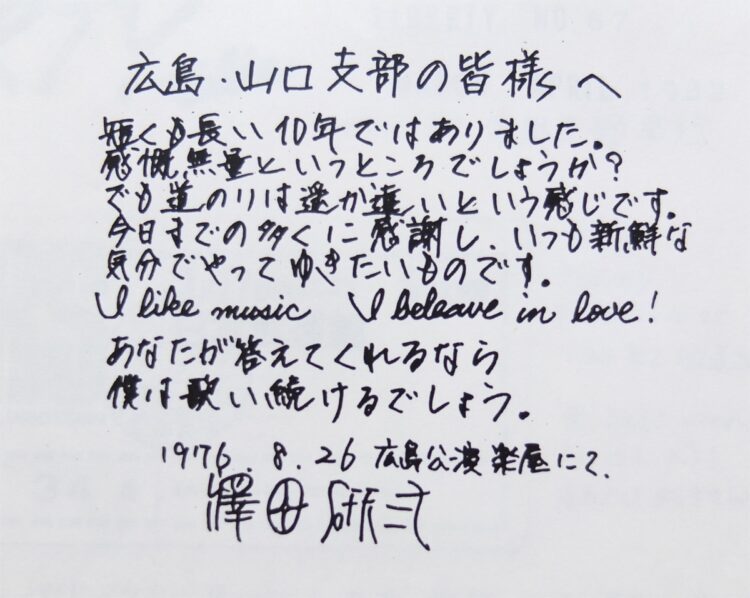 広島・山口支部の皆様へ
短くも長い10年ではありました。
感慨無量といったところでしょうか？
でも道のりは遥か遠いという感じです。
今日までの多くに感謝し、いつも新鮮な
気分でやってゆきたいものです。
I like music I beleave in love!
あなたが答えてくれるなら
僕は歌い続けるでしょう。
1976.8.26 広島公演楽屋にて、
澤田研二